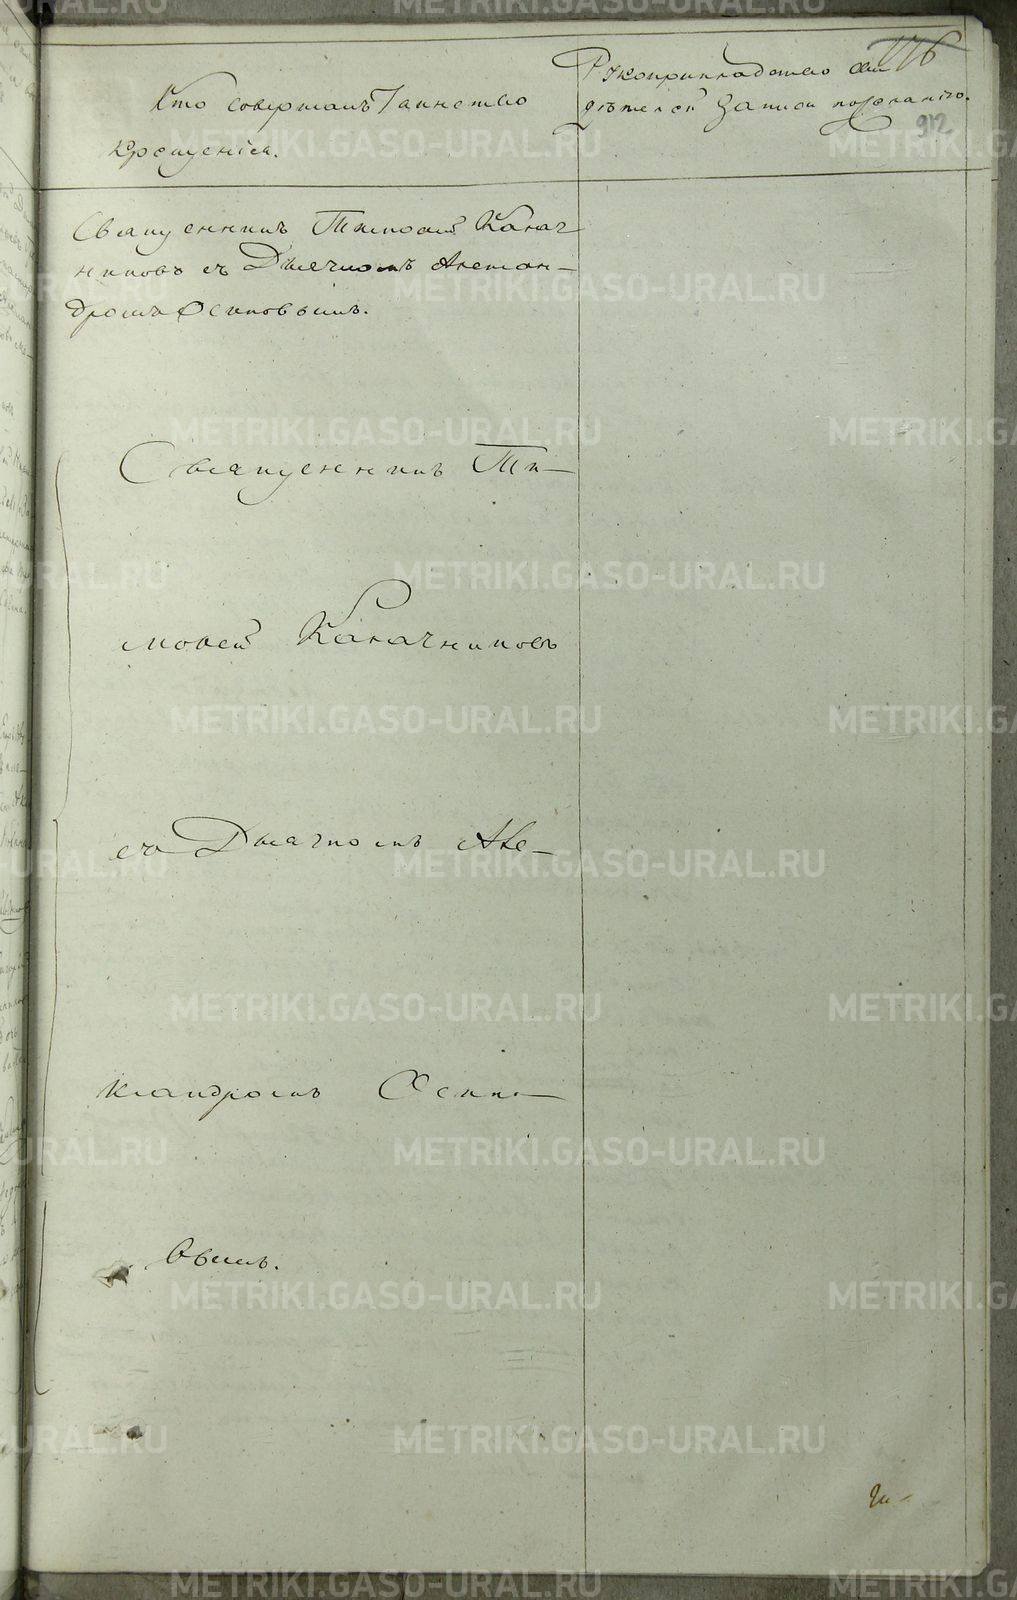 Кто совершалъ Таинство
Крещенія.
Рукоприкладство сви
дѣтелей записи по желанію.
176
912
Священникъ Тимоѳей Калач
никовъ съ Дьячкомъ Алексан-
дромъ Осиповымъ.
Священникъ Ти-
моѳей Калачниковъ
съ Дьячкомъ Але-
ксандромъ Осип-
овымъ.
METRIKI.GASO-URAL.RU